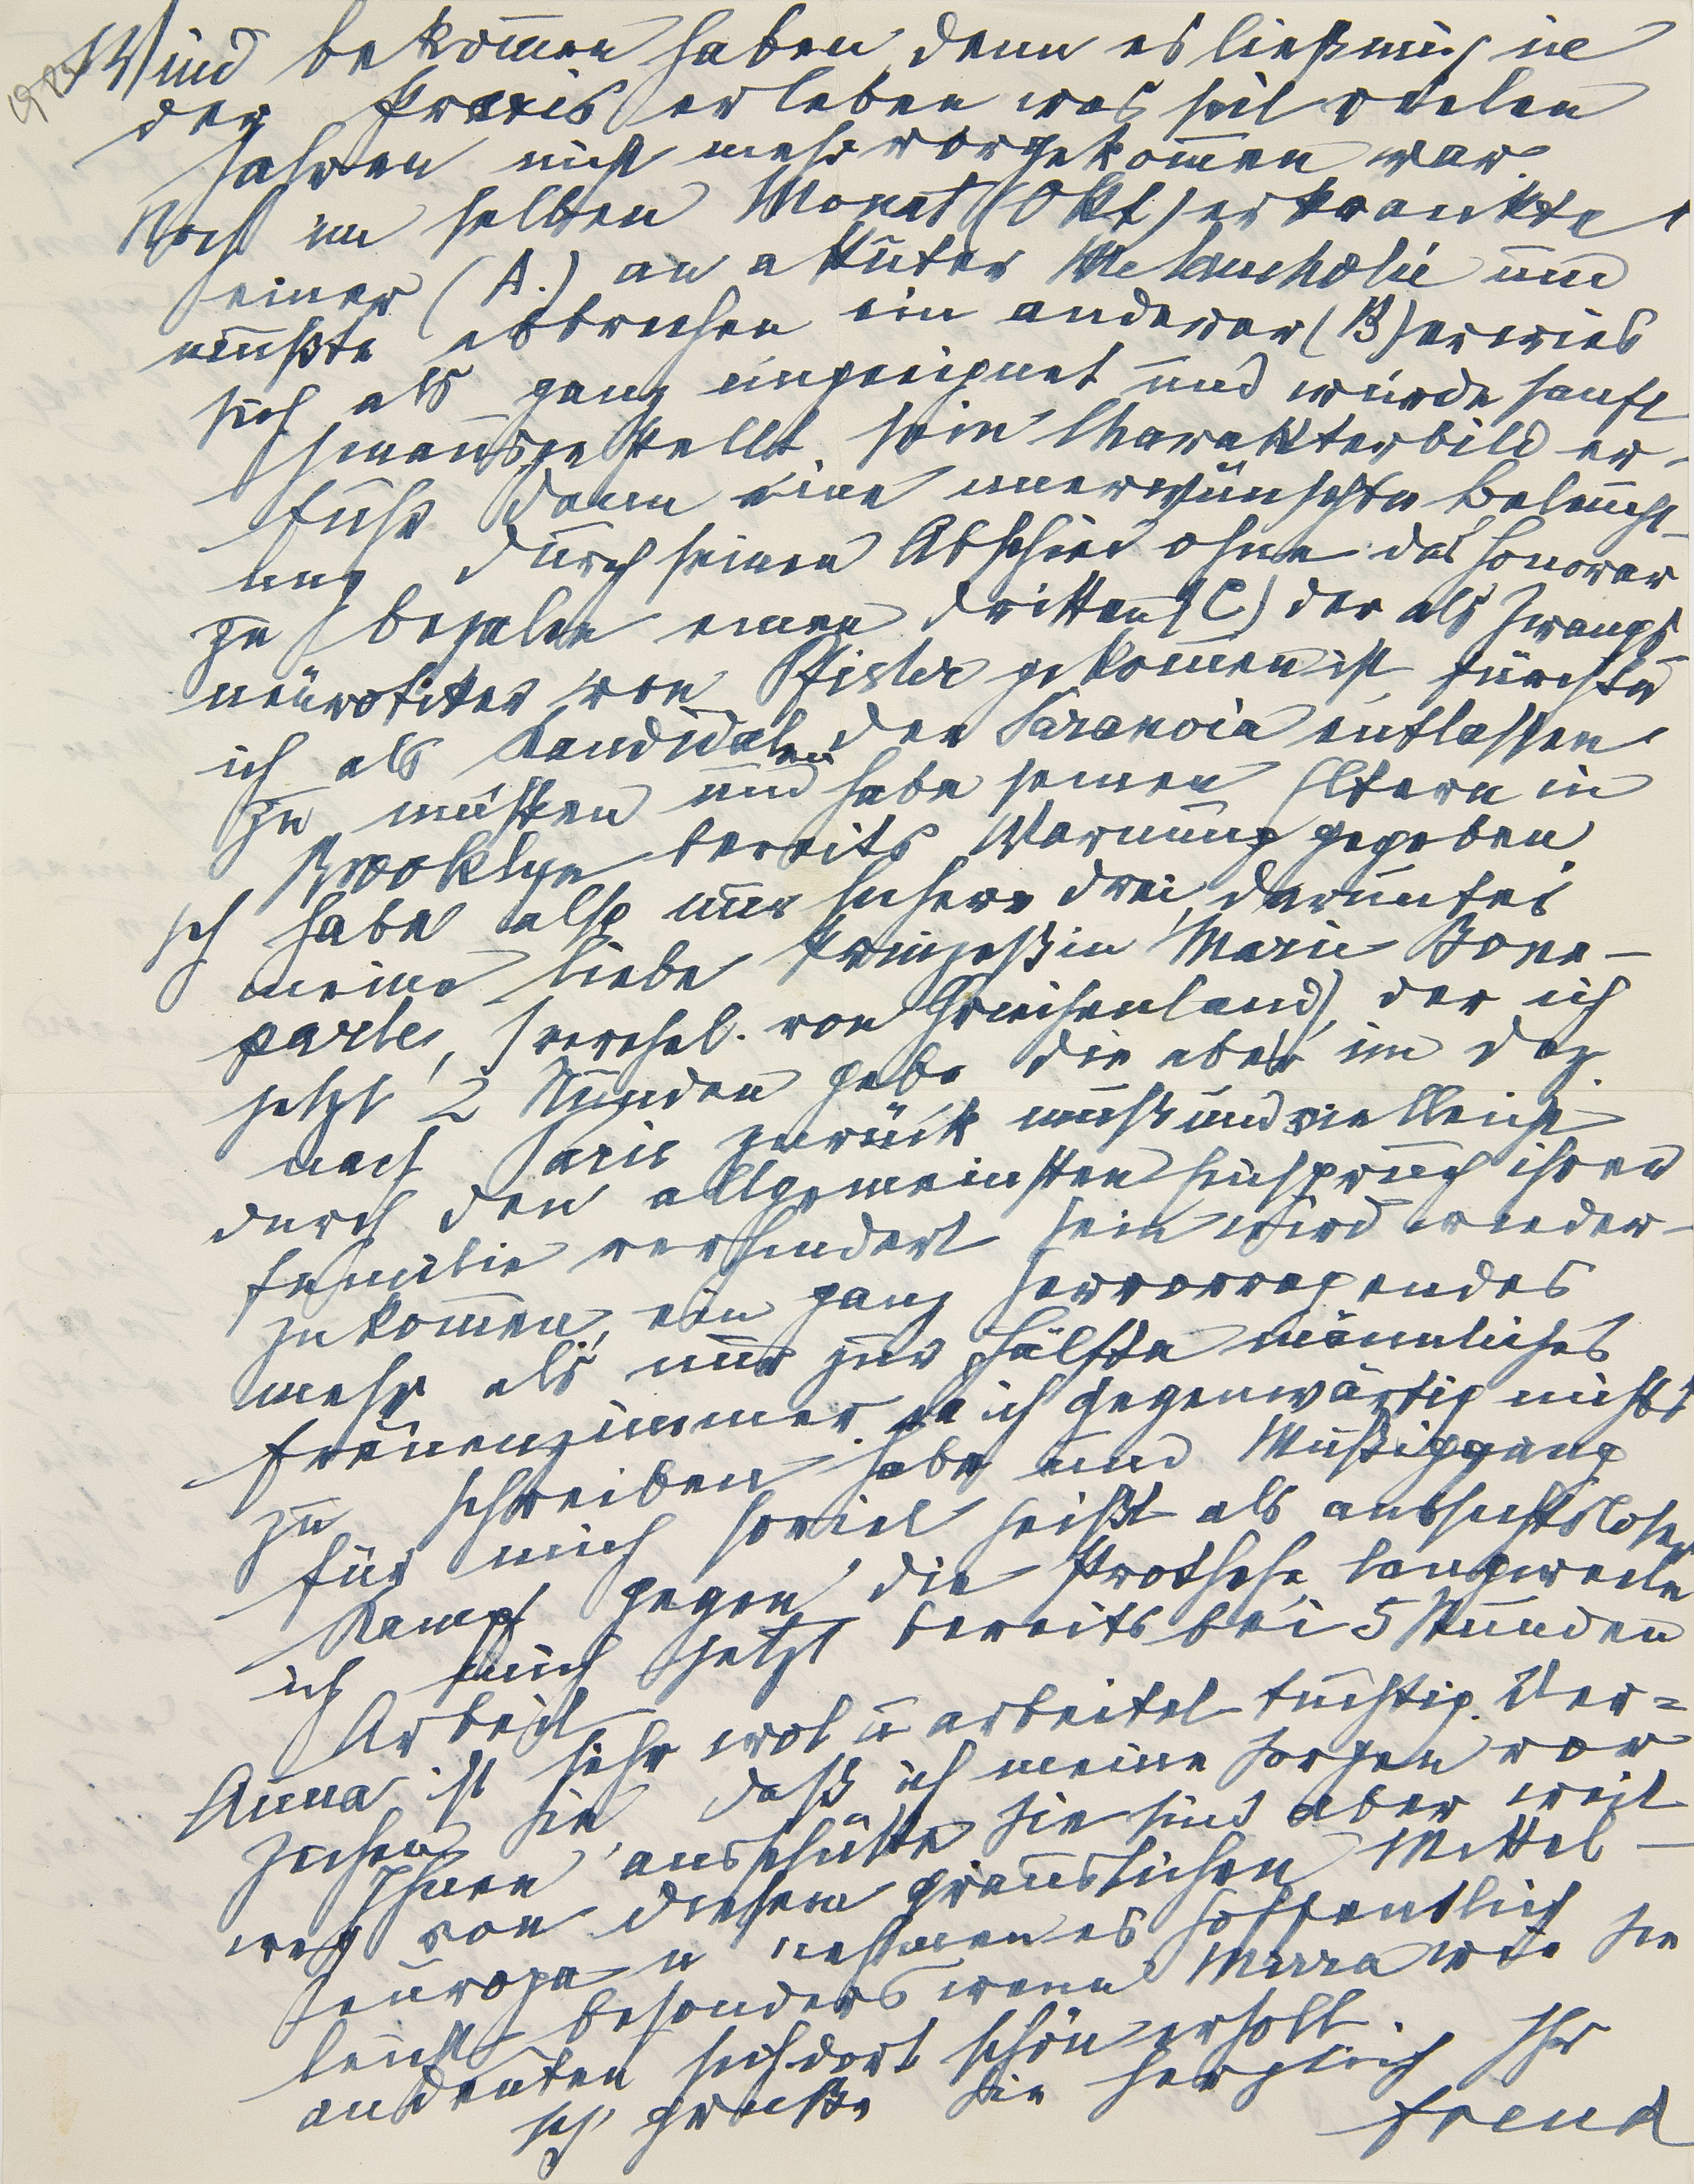 Wind bekommen haben, denn es ließ mich in
der Praxis erleben was seit vielen
Jahren nicht mehr vorgekommen war.
Noch im selben Monat (Okt) erkrankte
einer (A.) an akuter Melancholie und
mußte abbrechen ein anderer (B) erwies
sich als ganz ungeeignet und wurde sanft
hinausgestellt, sein Charakterbild er-
fuhr dann eine unerwünschte Beleucht-
ung durch seinen Abschied ohne das Honorar
zu bezalen einen dritten (C) der als Zwangs-
neurotiker von Pfister gekommen ist, fürchte
ich als Kandidaten der Paranoia entlassen
zu müssen und habe seinen Eltern in
Brooklyn bereits Warnung gegeben.
Ich habe also nur sichere drei, darunter
meine liebe Prinzessin Marie Bona-
parte, (verehel. von Griechenland), der ich
jetzt 2 Stunden gebe die aber im Dez.
nach Paris zurück muß und vielleicht
durch den allgemeinsten Einspruch ihrer
Familie verhindert sein wird wieder-
zukommen, ein ganz hervorragendes
mehr als nur zur Hälfte männliches
Frauenzimmer. Da ich gegenwärtig nichts
zu schreiben habe und Müßiggang
für mich soviel heißt als aussichtslosen
Kampf gegen die Prothese, langweile
ich mich jetzt bereits bei 5 Stunden
Arbeit.
Anna ist sehr wol u arbeitet tüchtig. Ver=
zeihen Sie daß ich meine Sorgen vor
Ihnen ausschütte Sie sind aber weit
weg von diesem grauslichen Mittel-
europa u nehmen es hoffentlich
leicht besonders wenn Mirra wie Sie
andeuten sich dort schön erholt.
Ich grüße Sie herzlich Ihr
Freud